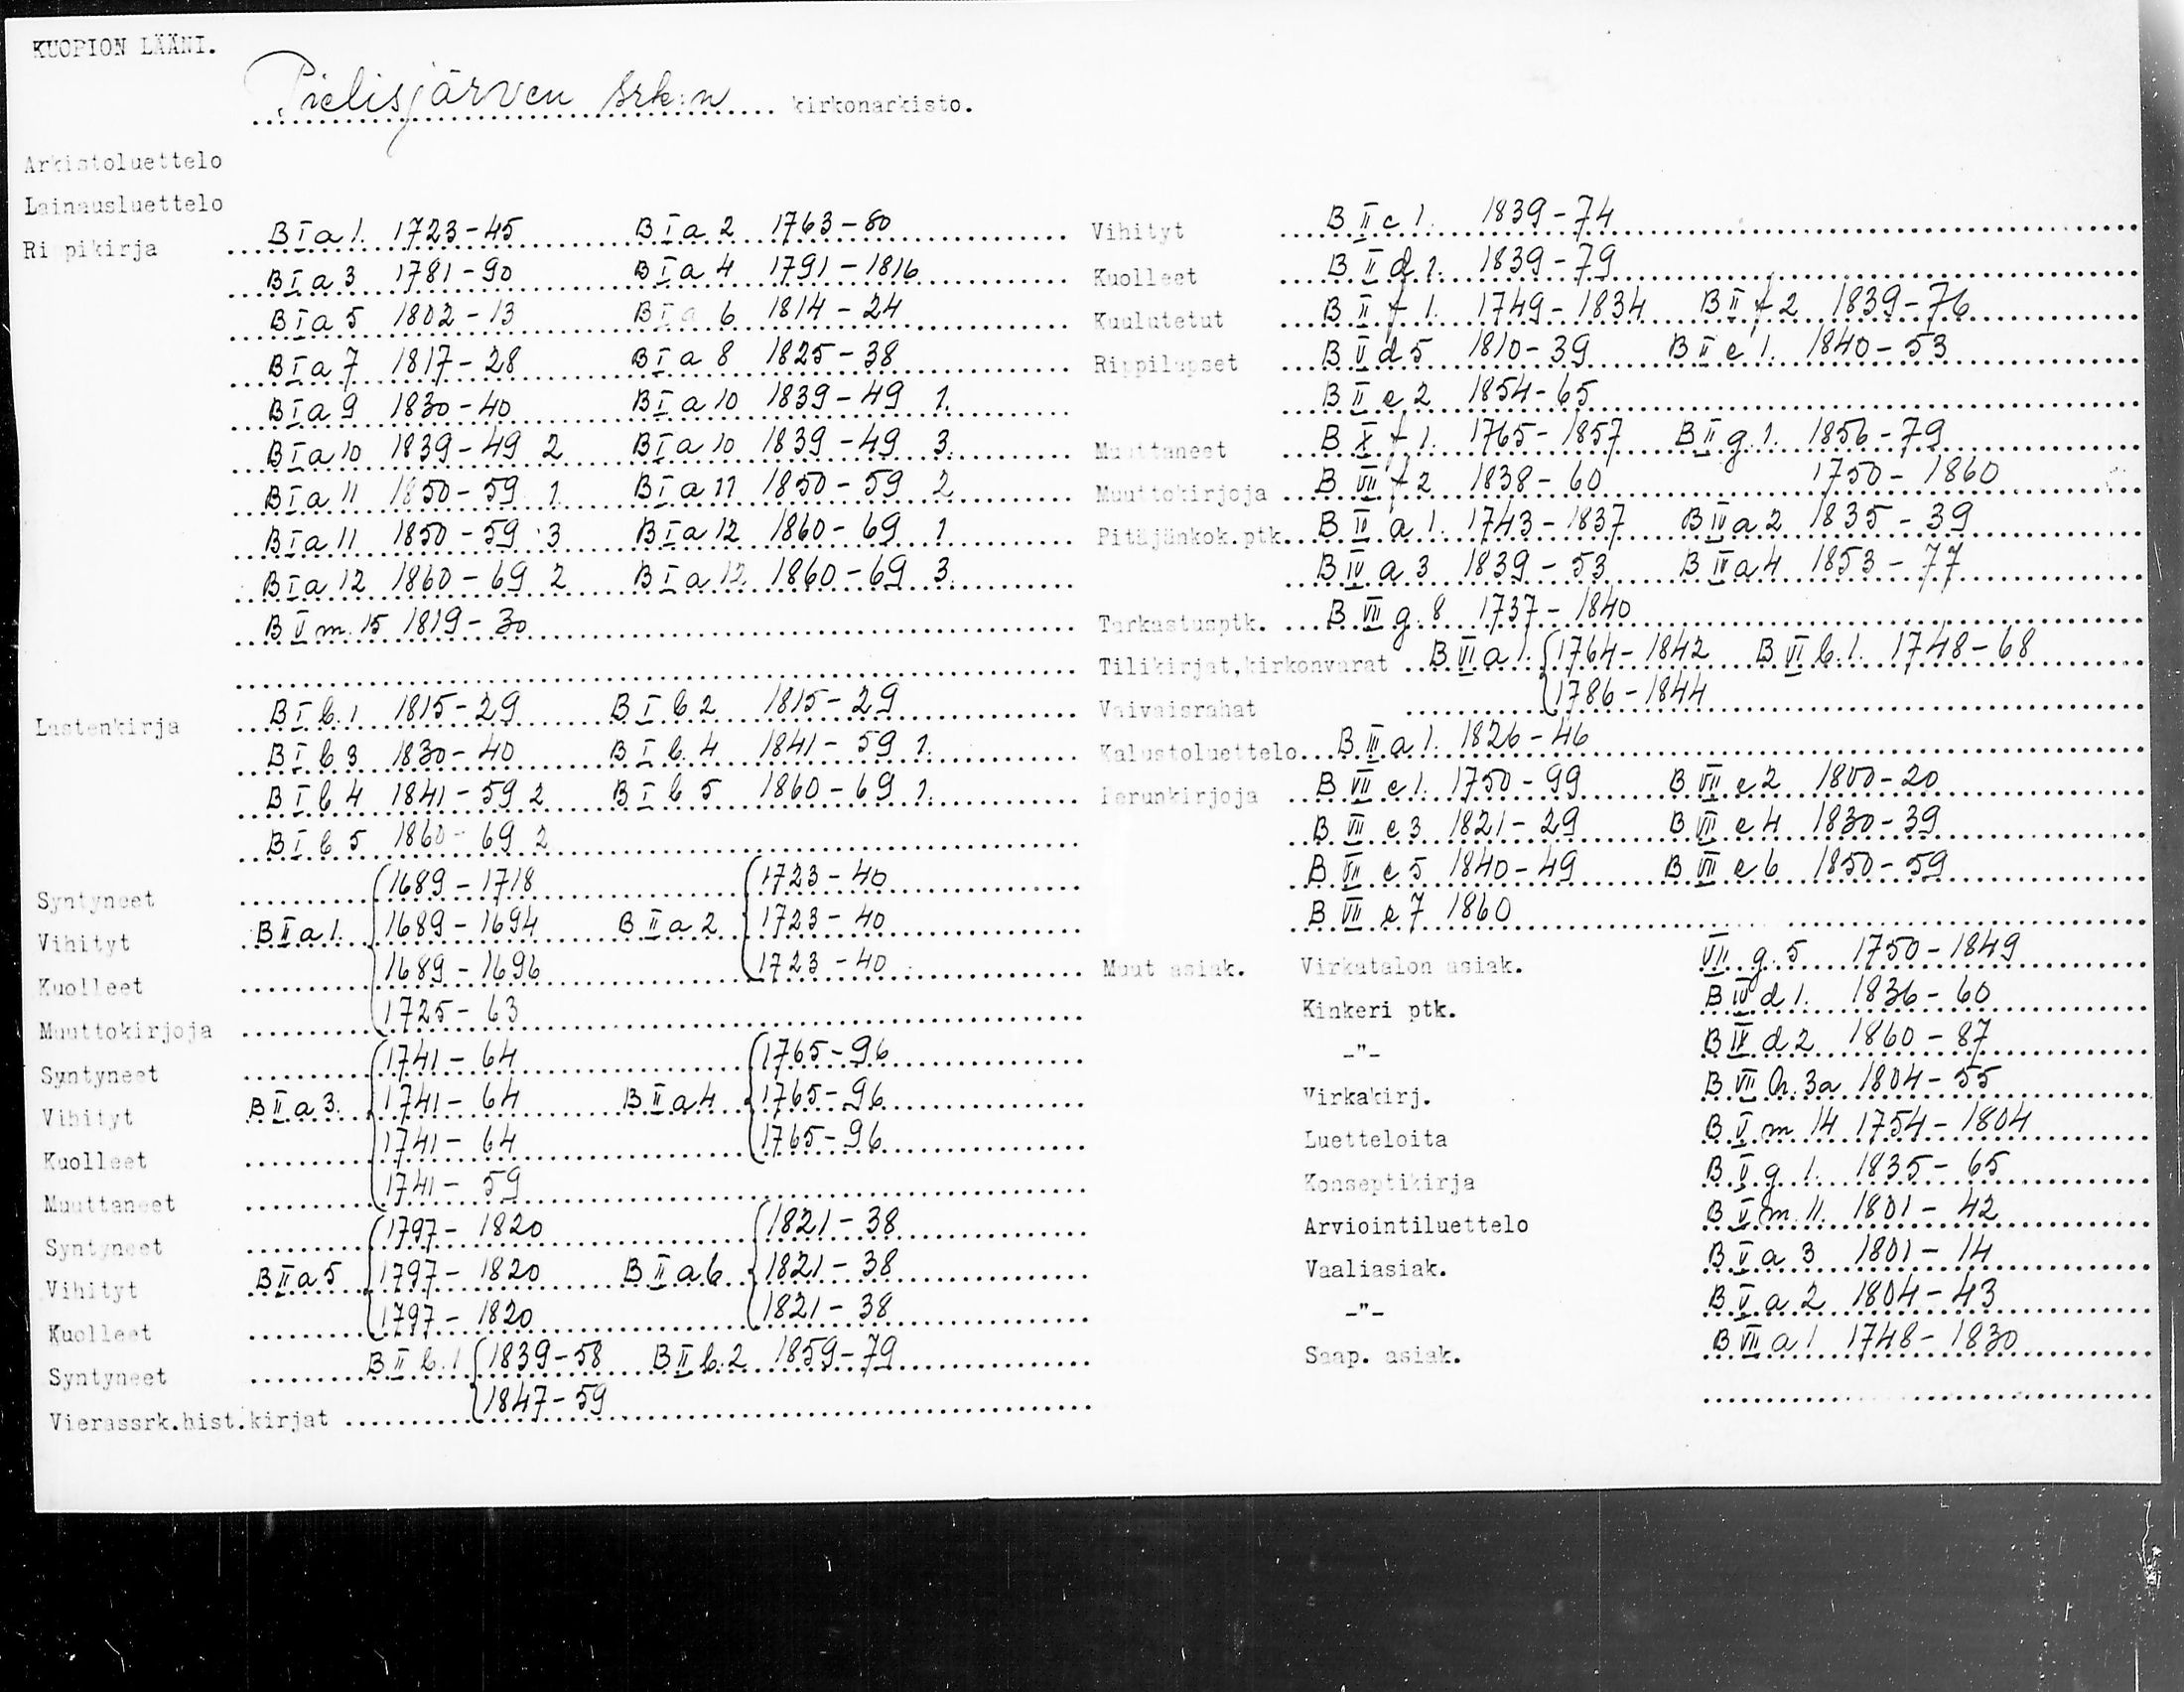 KUOPION LÄÄNI.
Pielisjärven srk:n kirkonarkisto.
Arkistoluettelo
Lainausluettelo
Ri pikirja B I a 1. 1723-45 B I a 2 1763-80
B I a 3 1781-90 B I a 4 1791-1816
B I a 5 1802-13 B I a 6 1814-24
B I a 7 1817-28 B I a 8 1825-38
B I a 9 1830-40 B I a 10 1839-49 1.
B I a 10 1839-49 2 B I a 10 1839-49 3.
B I a 11 1850-59 1. B I a 11 1850-59 2
B I a 11 1850-59 3 B I a 12 1860-69 1
B I a 12 1860-69 2 B I a 12 1860-69 3.
B V m 15 1819-30
Lastenkirja B I b.1 1815-29 B I b 2 1815-29
B I b 3 1830-40 B I b.4 1841-59 1.
B I b 4 1841-59 2 B I b 5 1860-69 1.
B I b 5 1860-69 2
Syntyneet 1689-1718 1723-40
Vihityt B II a 1. 1689-1694 B II a 2 1723-40
Kuolleet 1689-1696 1723-40
Muuttokirjoja 1725-63
Syntyneet 1741-64 1765-96
Vihityt B II a 3. 1741-64 B II a 4 1765-96
Kuolleet 1741-64 1765-96
Muuttaneet 1741-59
Syntyneet 1797-1820 1821-38
Vihityt B II a 5 1797-1820 B II a 6 1821-38
Kuolleet 1797-1820 1821-38
Syntyneet B II b.1 1839-58 B II b.2 1859-79
Vierassrk.hist.kirjat 1847-59
Vihityt B II c 1. 1839-74
Kuolleet B II d 1. 1839-79
Kuulutetut B II f 1. 1749-1834 B II f 2 1839-76
Rippilapset B V d 5 1810-39 B II e 1. 1840-53
B II e 2 1854-65
Muuttaneet B X f 1. 1765-1857 B II g.1. 1856-79
Muuttokirjoja B VII f 2 1838-60 1750-1860
Pitäjänkok.ptk. B IV a 1. 1743-1837 B IV a 2 1835-39
B IV a 3 1839-53 B IV a 4 1853-77
Tarkastusptk. B VII g.8 1737-1840
Tilikirjat,kirkonvarat B VI a 1. 1764-1842 B VI b.1. 1748-68
Vaivaisrahat 1786-1844
Kalustoluettelo B III a 1. 1826-46
Perunkirjoja B VII e 1. 1750-99 B VII e 2 1800-20
B VII e 3 1821-29 B VII e 4 1830-39
B VII e 5 1840-49 B VII e 6 1850-59
B VII e 7 1860
Muut asiak. Virkatalon asiak. VII g.5 1750-1849
Kinkeri ptk. B IV d 1. 1836-60
-"- B IV d 2 1860-87
Virkakirj. B VII h.3a 1804-55
Luetteloita B V m 14 1754-1804
Konseptikirja B V g 1. 1835-65
Arviointiluettelo B V m.11. 1801-42
Vaaliasiak. B V a 3 1801-14
-"- B V a 2 1804-43
Saap. asiak. B VII a 1 1748-1830